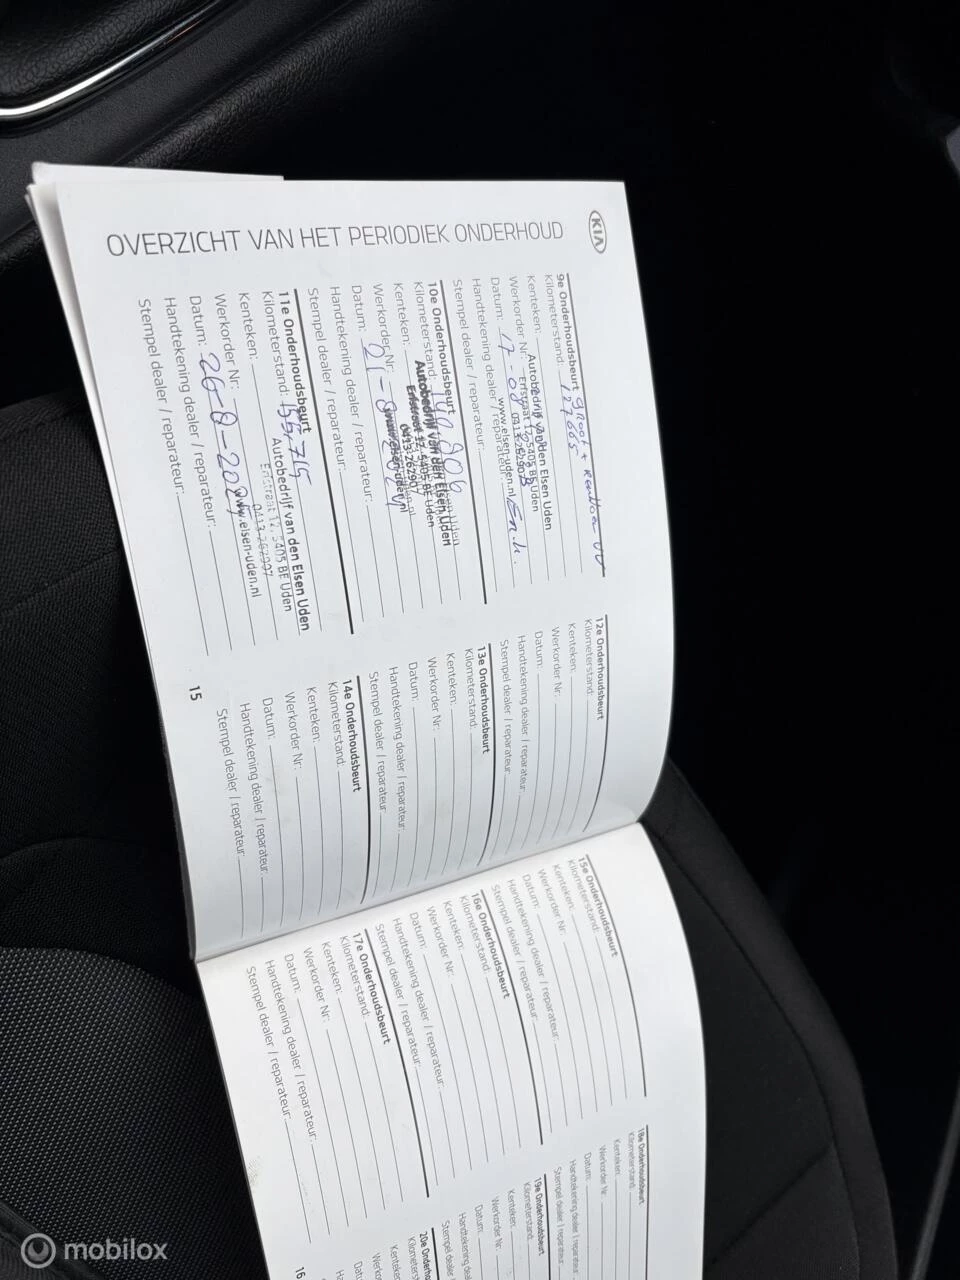 OVERZICHT VAN HET PERIODIEK ONDERHOUD
KIA
9e Onderhoudsbeurt groot +
Kilometerstand: 127665
Kenteken:
Autobedrijf van den Elsen Uden
Werkorder Nr:
Erfstraat 12, 5405 BE Uden
0413-262907
Datum: 17-08-
www.elsen-uden.nl
Handtekening dealer / reparateur:
Stempel dealer / reparateur:
10e Onderhoudsbeurt
Kilometerstand:
Kenteken:
Autobedrijf van den Elsen Uden
Erfstraat 12, 5405 BE Uden
Werkorder Nr:
0413-262907
www.elsen-uden.nl
Datum: 21-8-2024
Handtekening dealer / reparateur:
Stempel dealer / reparateur:
11e Onderhoudsbeurt
Kilometerstand: 155,715
Kenteken:
Autobedrijf van den Elsen Uden
Erfstraat 12, 5405 BE Uden
Werkorder Nr:
0413-262907
www.elsen-uden.nl
Datum: 26-8-202
Handtekening dealer / reparateur:
Stempel dealer / reparateur:
12e Onderhoudsbeurt
Kilometerstand:
Kenteken:
Werkorder Nr:
Datum:
Handtekening dealer / reparateur:
Stempel dealer / reparateur:
13e Onderhoudsbeurt
Kilometerstand:
Kenteken:
Werkorder Nr:
Datum:
Handtekening dealer / reparateur:
Stempel dealer / reparateur:
14e Onderhoudsbeurt
Kilometerstand:
Kenteken:
Werkorder Nr:
Datum:
Handtekening dealer / reparateur:
Stempel dealer / reparateur:
15
15e Onderhoudsbeurt
Kilometerstand:
Kenteken:
Werkorder Nr:
Datum:
Handtekening dealer / reparateur:
Stempel dealer / reparateur:
16e Onderhoudsbeurt
Kilometerstand:
Kenteken:
Werkorder Nr:
Datum:
Handtekening dealer / reparateur:
Stempel dealer / reparateur:
17e Onderhoudsbeurt
Kilometerstand:
Kenteken:
Werkorder Nr:
Datum:
Handtekening dealer / reparateur:
Stempel dealer / reparateur:
18e Onderhoudsbeurt
Kilometerstand:
Kenteken:
Werkorder Nr:
Datum:
Handtekening dealer / reparateur:
Stempel dealer / reparateur:
19e Onderhoudsbeurt
Kilometerstand:
Kenteken:
Werkorder Nr:
Datum:
20e
16
mobilox